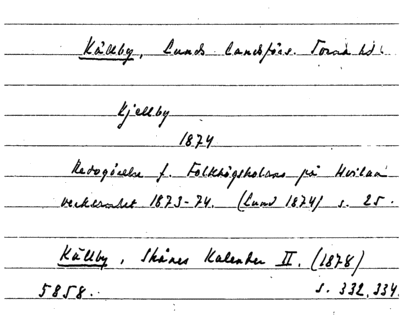 Källby, Lunds landsförs. Torna hd.
Kjellby
1874
Redogörelse f. Folkhögskolans på Hvilan
verksamhet 1873-74. (Lund 1874) s. 25.
Källby, Skånes Kalender II. (1878)
5858. s. 332, 334